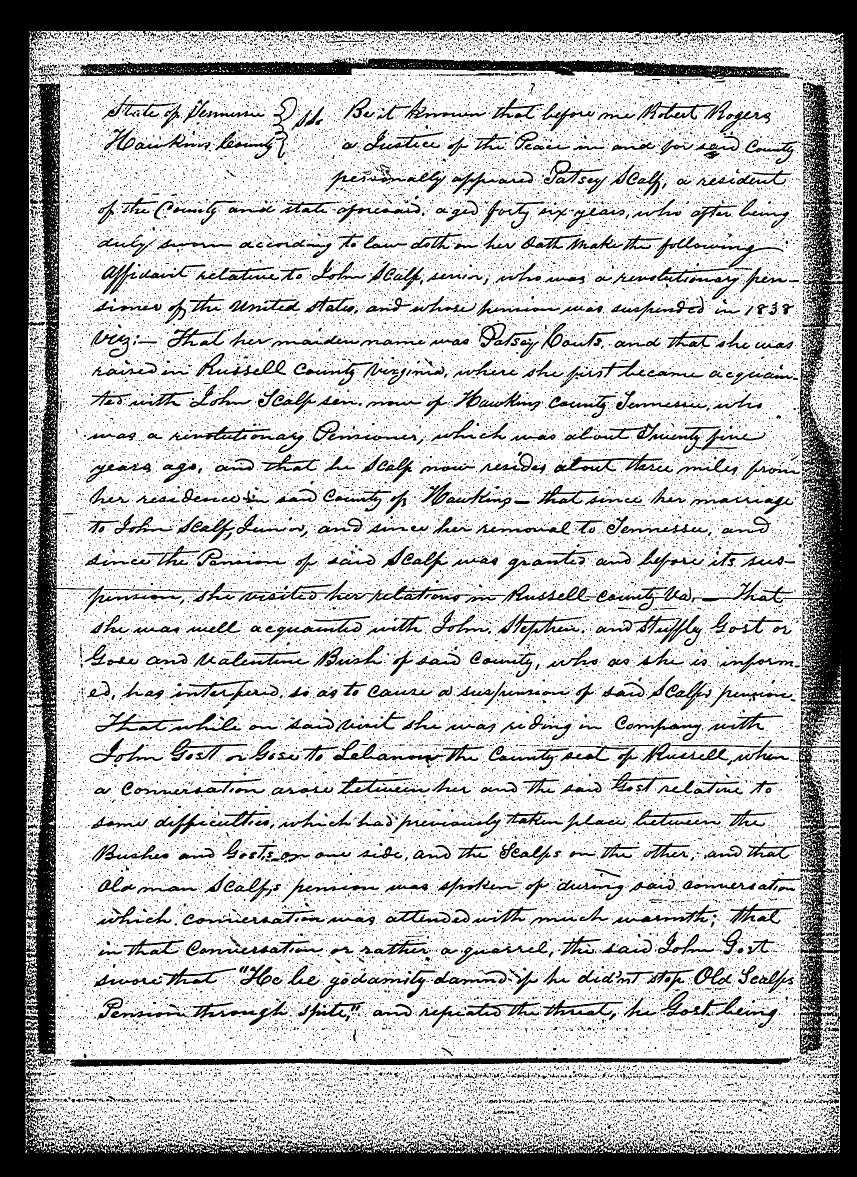 State of Tennessee } ss. Be it known that before me Robert Rogers
Hawkins County } a Justice of the Peace in and for said County
personally appeared Patsey Scalf, a resident
of the County and state aforesaid, aged forty six years, who after being
duly sworn according to law doth on her Oath make the following
affidavit relative to John Scalf, senior, who was a revolutionary pen-
sioner of the United States, and whose pension was suspended in 1838
Viz:— That her maiden name was Patsey Couts, and that she was
raised in Russell County Virginia, where she first became acquain-
ted with John Scalf sen. now of Hawkins County Tennessee, who
was a revolutionary Pensioner, which was about Twenty five
years ago, and that he Scalf now resides about three miles from
her residence in said County of Hawkins — that since her marriage
to John Scalf, Junior, and since her removal to Tennessee, and
since the Pension of said Scalf was granted and before its sus-
pension, she visited her relations in Russell County Va. — That
she was well acquainted with John, Stephen, and Stuffly Gost or
Gose and Valentine Bush of said County, who as she is inform-
ed, has interfered, so as to cause a suspension of said Scalfs pension.
That while on said visit she was riding in company with
John Gost or Gose to Lebanon the County seat of Russell, when
a conversation arose between her and the said Gost relative to
some difficulties, which had previously taken place between the
Bushes and Gosts, on one side, and the Scalfs on the other, and that
Old man Scalfs pension was spoken of during said conversation
which conversation was attended with much warmth; that
in that conversation or rather a quarrel, the said John Gost
swore that "He be godamity damnd if he did'nt stop Old Scalfs
Pension through spite," and repeated the threat, he Gost being